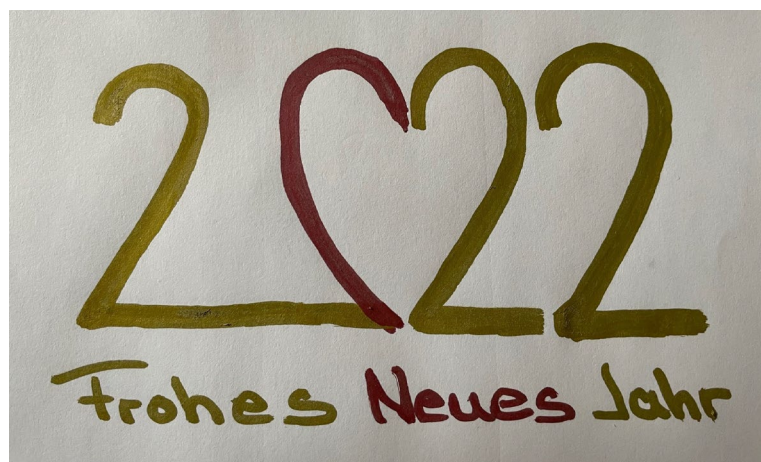 2022
Frohes Neues Jahr